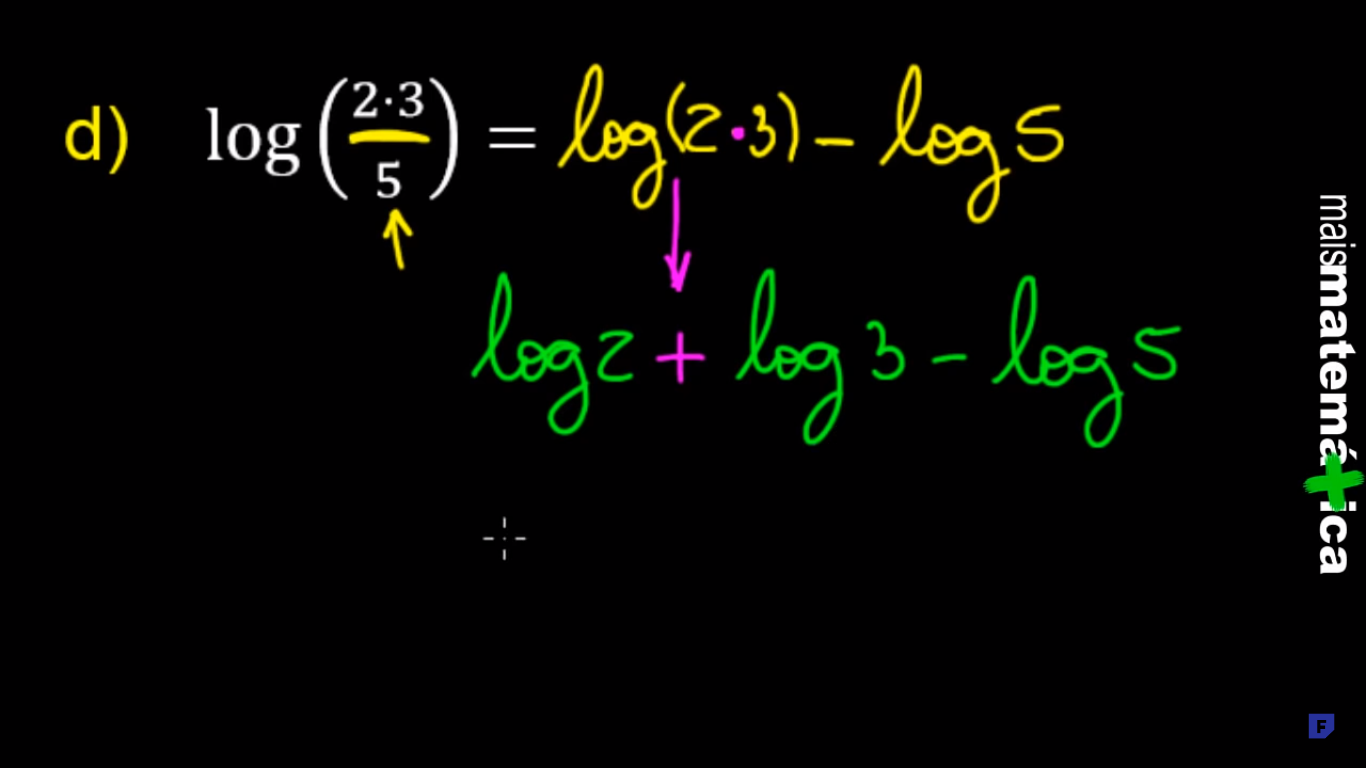 d) log (2·3/5) = log(2·3) - log 5
log 2 + log 3 - log 5
maismatemática
F